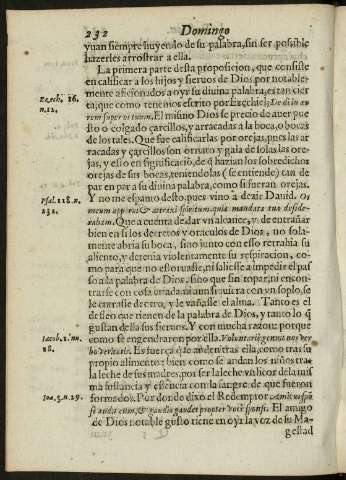 232 Domingo
yuan siempre huyendo de su palabra, sin ser possible
hazerles arrostrar a ella.
La primera parte desta proposicion, que consiste
en calificar a los hijos y sieruos de Dios por notable-
mente aficionados a oyr su diuina palabra, es tan cier
Ezech. 16.
n.12.
ta, que como tenemos escrito por Ezechiel: Dedi in au
rem super os tuum. El mismo Dios se precio de auer pue
sto o colgado çarcillos, y arracadas a la boca, o bocas
de los tales. Que fue calificarlas por orejas, pues las ar
racadas y çarcillos son ornato y gala de solas las ore-
jas, y esto en significació, de q̃ hazian los sobredichos
orejas de sus bocas, teniendolas (se entiende) tan de
par en par a su diuina palabra, como si fueran orejas.
Psal. 118. n.
131.
Y no me espanto desto, pues vino a dezir Dauid. Os
meum aperui, & attraxi spiritum, quia mandata tua deside-
rabam. Que a cuenta de dar vn alcance, y de entrañar
bien en si los decretos y oraculos de Dios, no sola-
mente abria su boca, sino junto con esso retrahia su
aliento, y detenia violentamente su respiracion, co-
mo para que no estoruasse, ni saliesse a impedir el pas
so a la palabra de Dios, sino que sin topar, ni encon-
trarse con cosa criada, ni aun con vn soplo, se
le entrasse dentro, y le vañasse el alma. Tanto es el
desseo que tienen de la palabra de Dios, y tanto lo q̃
gustan della sus sieruos. Y con mucha razon: porque
Iacob. 1. nu.
18.
como se engendraron por ella. Voluntariè genuit nos ver
bo veritatis. Es fuerça q̃ se anden tras ella, como tras su
propio alimento: bien como se andan los niños tras
la leche de sus madres, por ser la leche vn licor de la mis
ma sustancia y essencia con la sangre de que fueron
Ioa. 3. n. 29.
formados. Por donde dixo el Redemptor. Amicus spõ
si audit eum, & gaudio gaudet propter vocẽ sponsi. El amigo
de Dios notable gusto tiene en oyr la voz de su Ma-
gestad